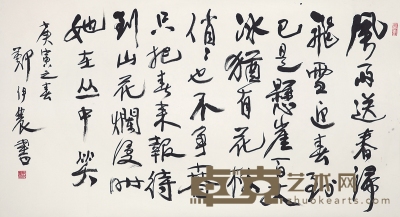 風雨送春歸
飛雪迎春到
已是懸崖百丈
冰猶有花枝
俏〻也不爭春
只把春來報待
到山花爛漫時
她在丛中笑
庚寅之春
鄭伯農書